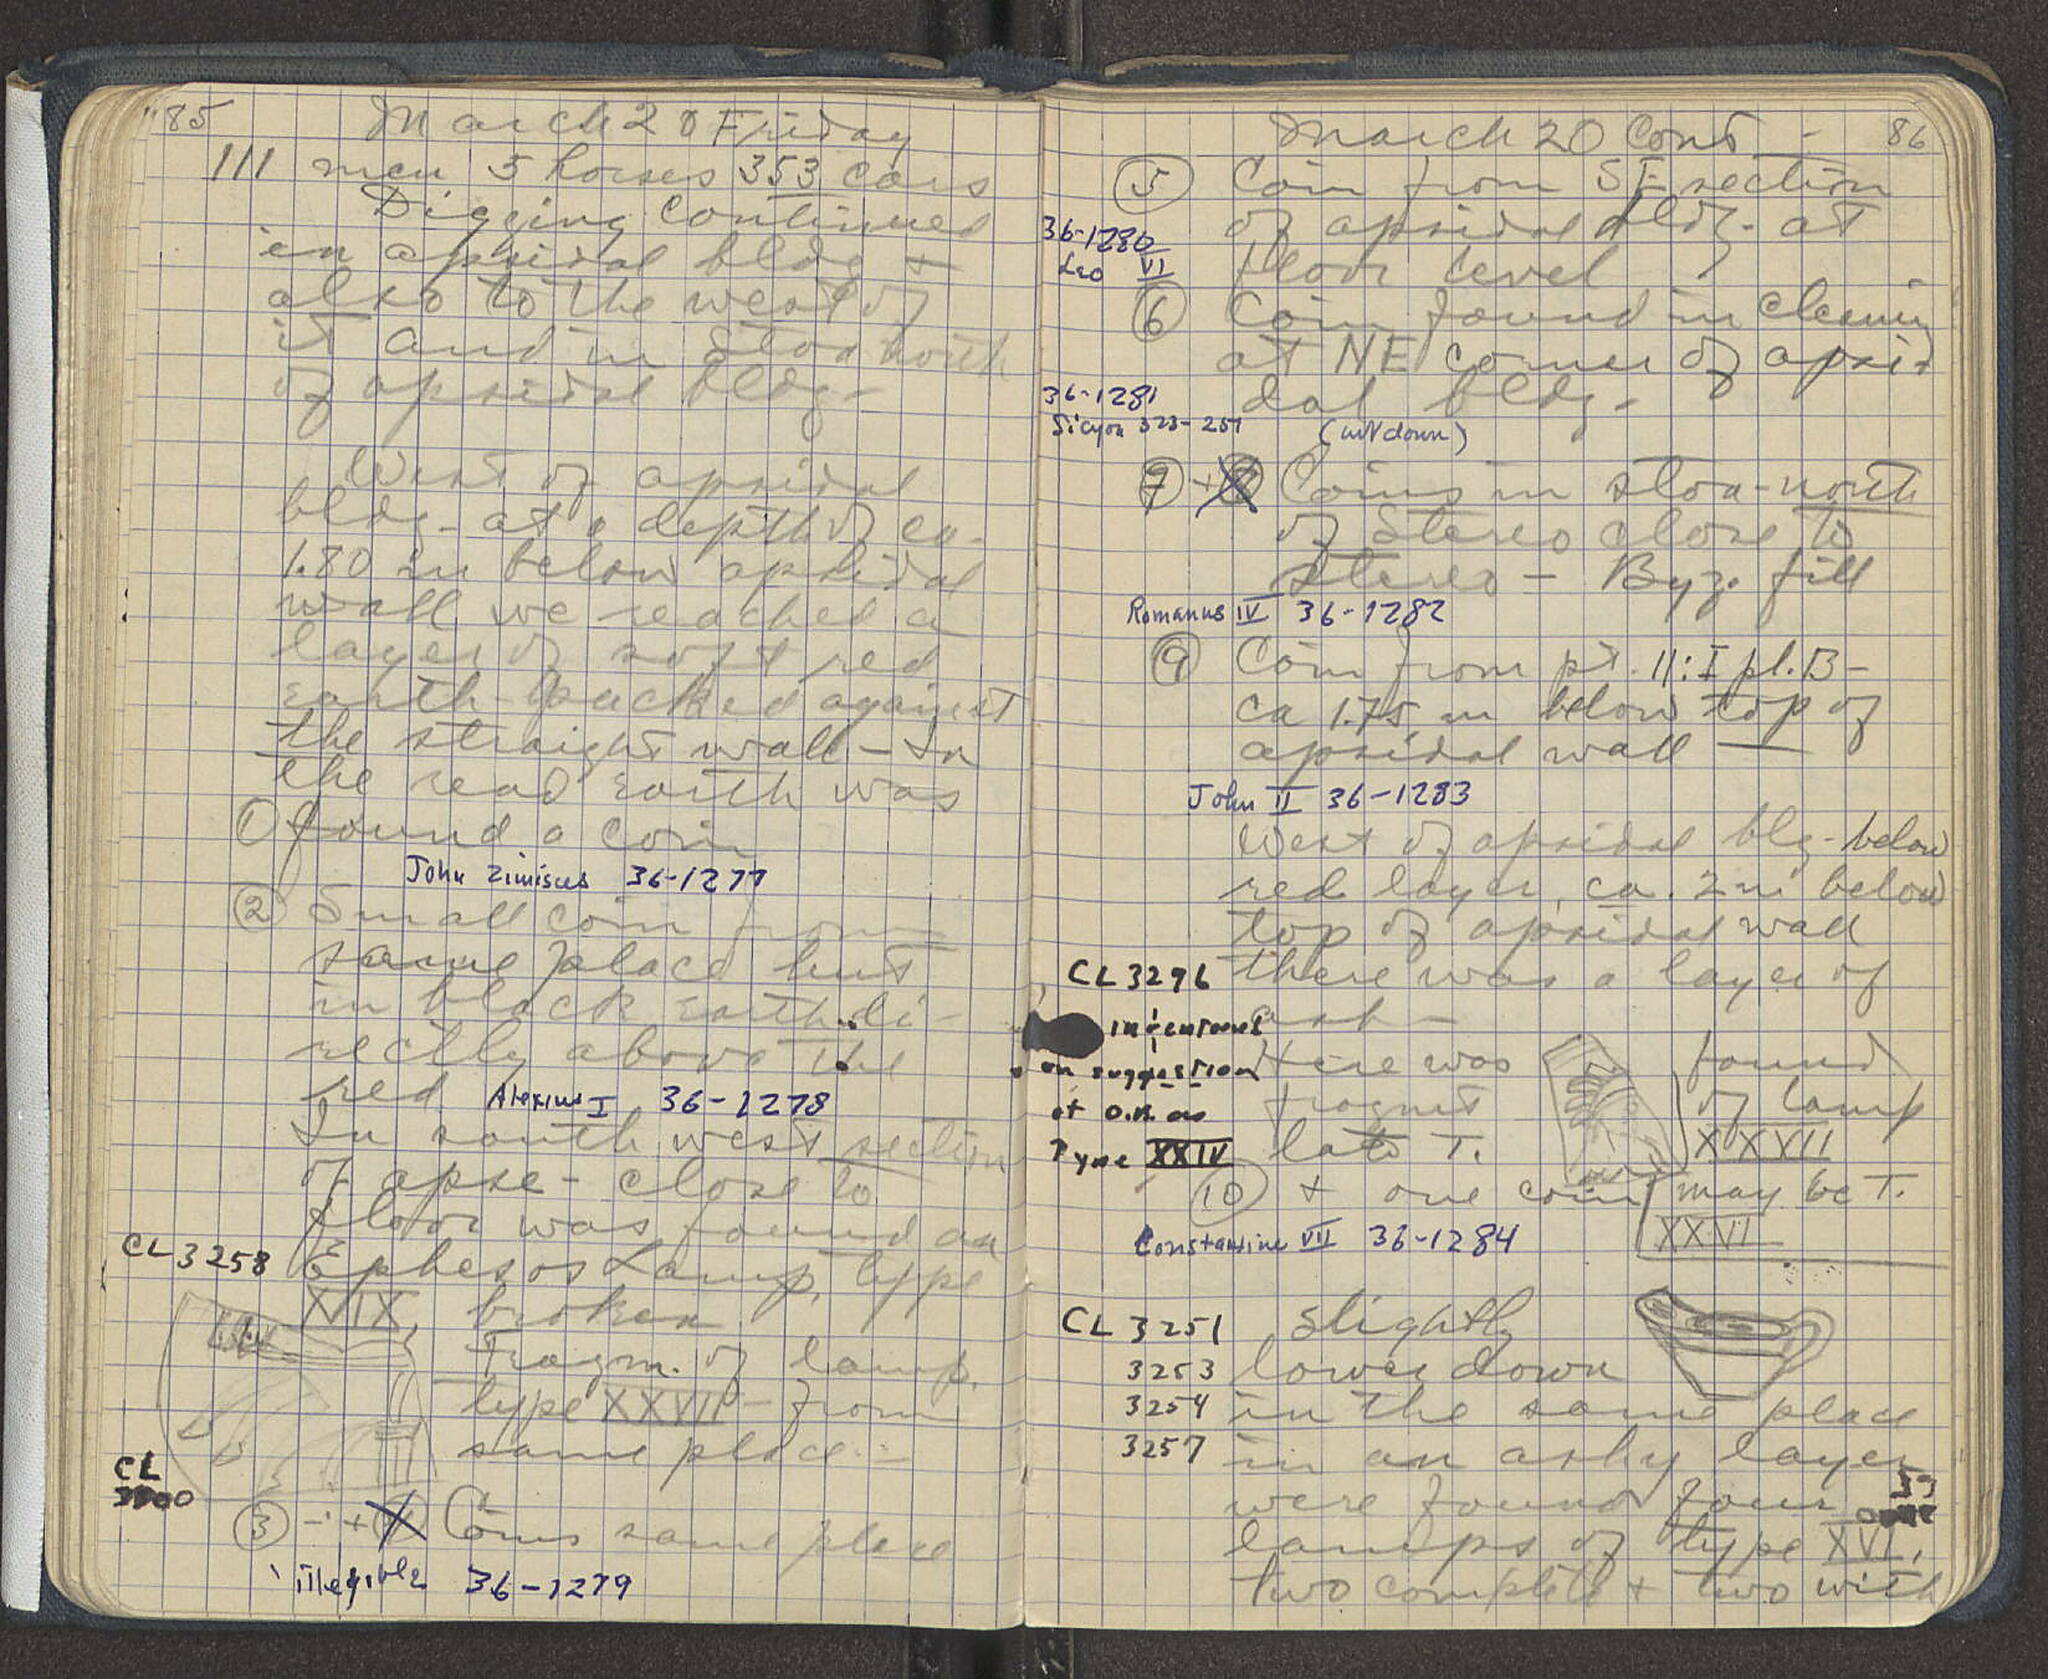 85
March 20 Friday
111 men 5 horses 353 cars
Digging continued
in apsidal bldg +
also to the west of
it and in Stoa north
of apsidal bldg-
West of apsidal
bldg- at a depth of ca.
1.80 m below apsidal
wall we reached a
layer of soft red
earth packed against
the straight wall - In
the read earth was
① found a coin
John Zimisces 36-1277
② Small coin from
same place but
in black earth di-
rectly above the
red Alexius I 36-1278
In south west section
of apse - close to
floor was found an
CL 3258 Ephesos Lamp, type
XIX, broken
Fragm. of lamp,
type XXVII - from
same place -
CL
③ + Coins same place
illegible 36-1279
March 20 Cont - 86
⑤ Coin from SE section
of apsidal bldg- at
36-1280
floor level
Leo VI
⑥ Coin found in cleaning
at NE corner of apsi-
36-1281
dal bldg-
Sicyon 323-251 (cut down)
⑦ + Coins in stoa-north
of Stereo close to
stereo - Byz. fill
Romanus IV 36-1282
⑨ Coin from pt. 11:I pl. B-
ca 1.75 m below top of
apsidal wall
John II 36-1283
West of apsidal blg- below
red layer, ca. 2 m below
top of apsidal wall
CL 3296 there was a layer of
ash-
inventoried
on suggestion
of O.B. as
Type XXIV
Here was found
fragmt of lamp
late T. XXVII
⑩ + one coin may be T.
XXVI
Constantine VII 36-1284
CL 3251 slightly
3253 lower down
3254 in the same place
3257 in an ashy layer
were found four
lamps of type XVI,
two complete + two with